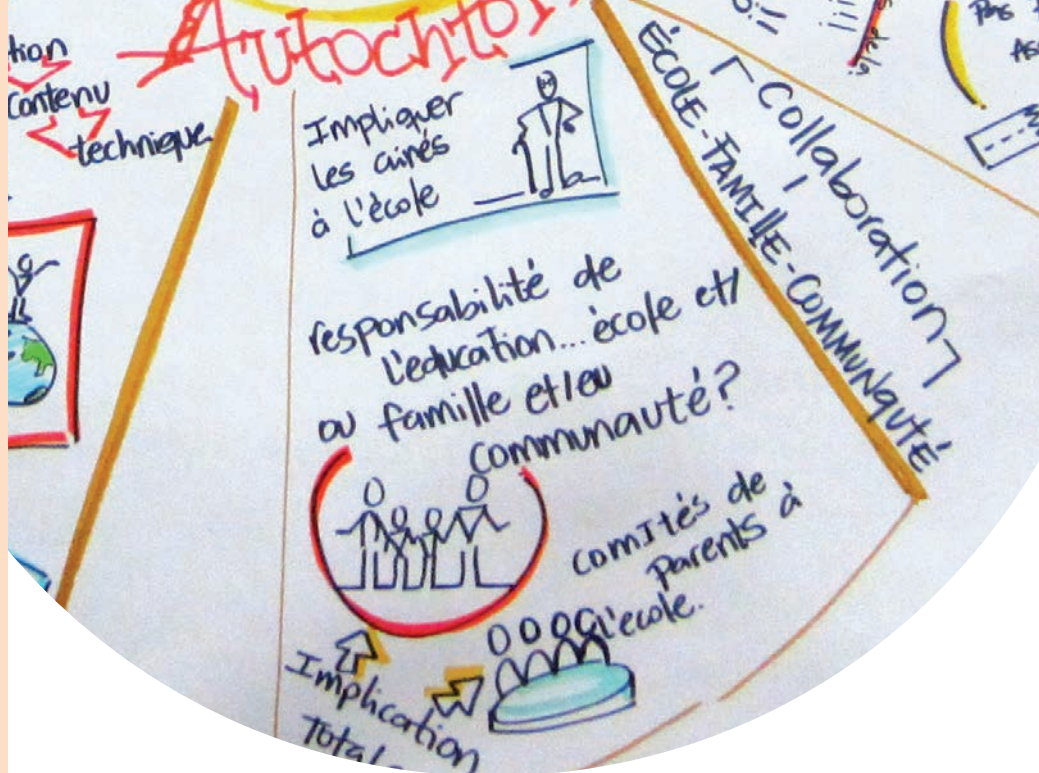 Autochto
tion
contenu
technique
Impliquer
les ainés
à l'école
responsabilité de
l'education... école et/
ou famille et/ou
communauté?
comités de
parents à
l'ecole.
Implication
Totale
Collaboration
ÉCOLE-FAMILLE-COMMUNAUTÉ
Pas